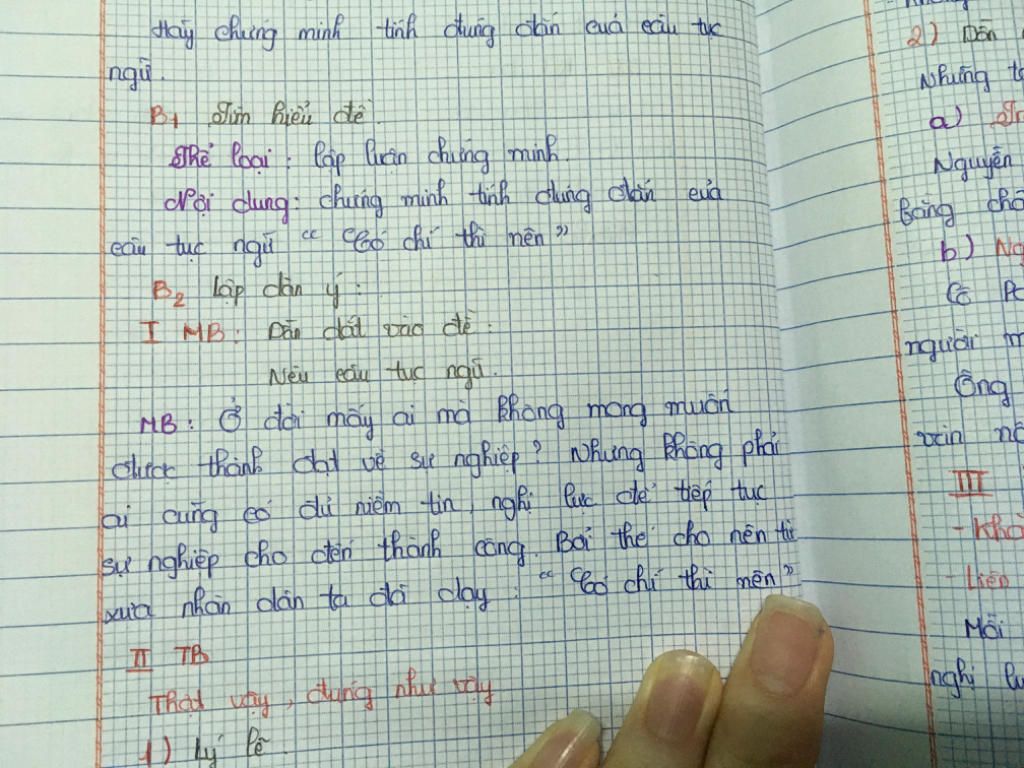 Hãy chứng minh tính đúng đắn của câu tục
ngữ.
B1 Tìm hiểu đề.
Thể loại: lập luận chứng minh.
Nội dung: chứng minh tính đúng đắn của
câu tục ngữ “Có chí thì nên”
B2 Lập dàn ý:
I MB: Dẫn dắt vào đề:
Nêu câu tục ngữ.
MB: Ở đời mấy ai mà không mong muốn
được thành đạt về sự nghiệp? Nhưng không phải
ai cũng có đủ niềm tin, nghị lực để tiếp tục
sự nghiệp cho đến thành công. Bởi thế cho nên từ
xưa nhân dân ta đã dạy: “Có chí thì nên”
II TB
Thật vậy, đúng như vậy
1) Lý lẽ
2) Dẫn
Những
a)
Nguyễn
bằng
b)
Cô
người
Ông
văn
III
- Khở
- Liên
Mỗi
nghị